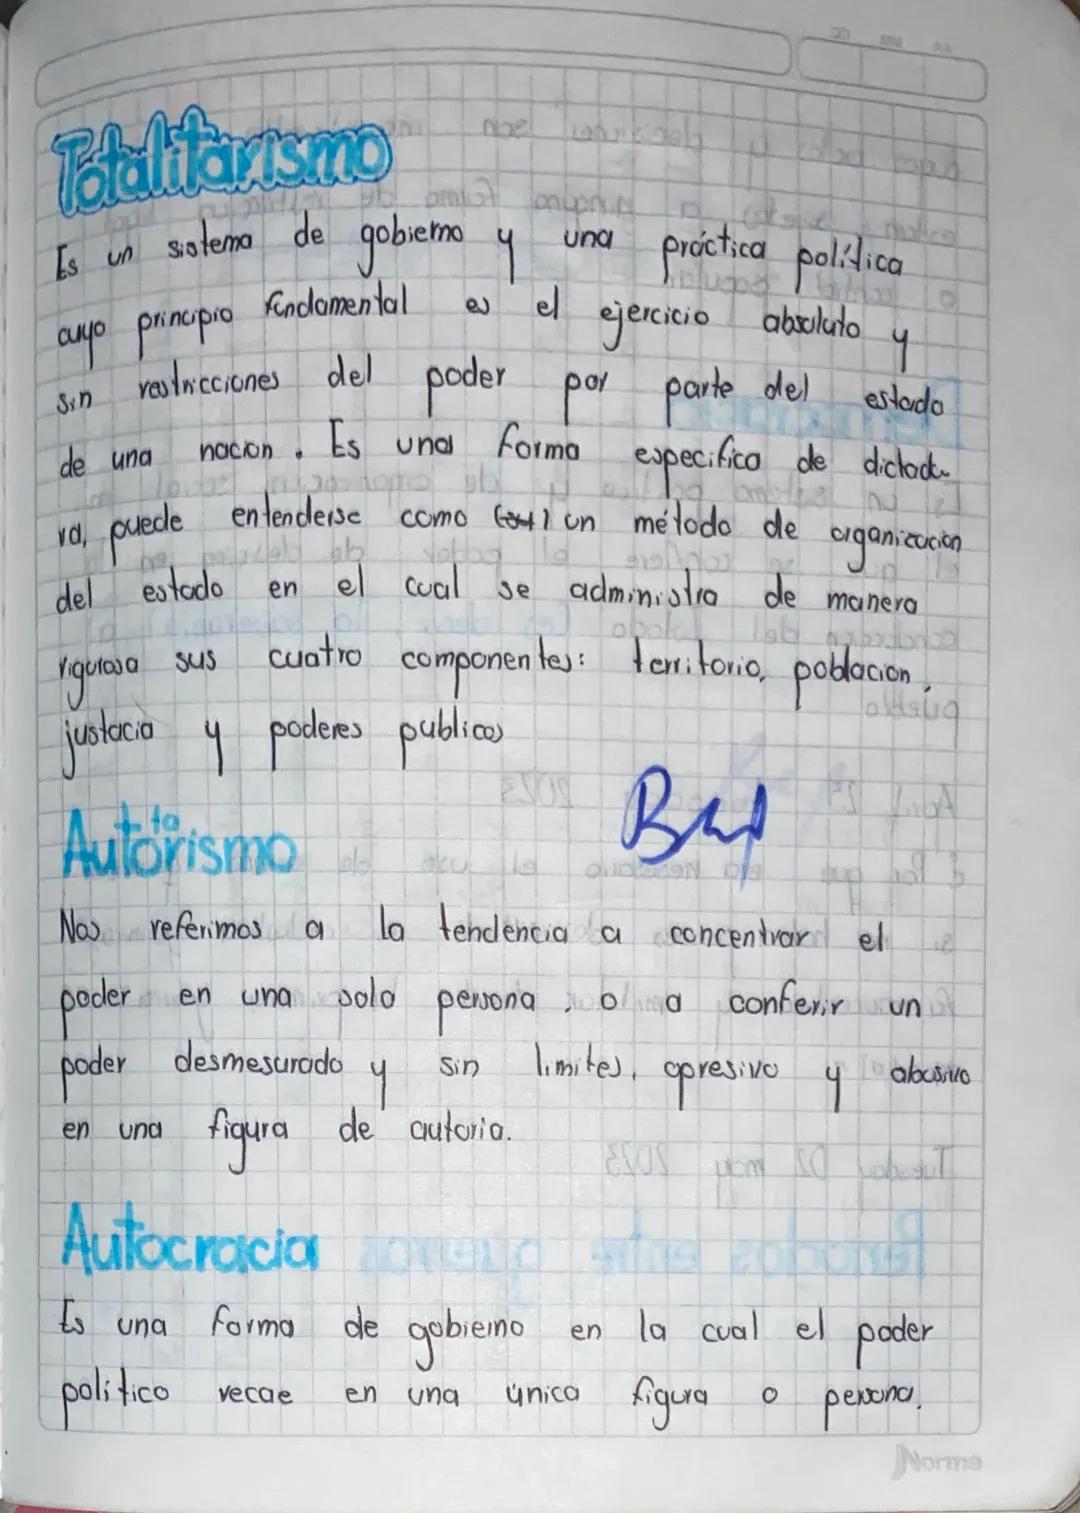 Totalitarismo
Es un sistema de gobierno y una práctica política
cuyo principio fundamental es el ejercicio absoluto y
sin restricciones del poder por parte del estado
de una nacion. Es una forma especifica de dictadu
ra, puede entenderse como un método de organizacion
del estado en el cual se administra de manera
rigurosa sus cuatro componentes: territorio, poblacion,
justacia y poderes publicos
Autotarismo
Nos referimos a la tendencia a concentrar el
poder en una solo persona, o a conferir un
poder desmesurado y sin limites, opresivo y abusivo
en una figura de autoria.
Autocracia
Es una forma de gobierno en la cual el poder
politico recae en una única figura o persona.
Norma